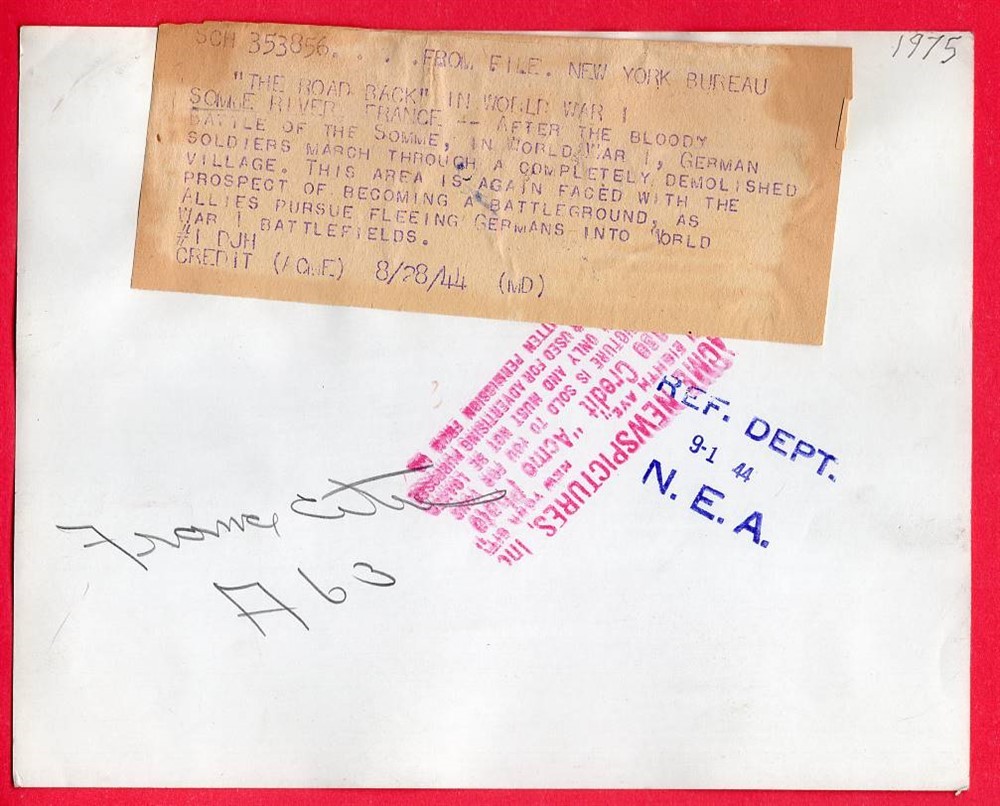 1975
SCH 353856. . . .FROM FILE. NEW YORK BUREAU
"THE ROAD BACK" IN WORLD WAR I
SOMME RIVER, FRANCE -- AFTER THE BLOODY
BATTLE OF THE SOMME, IN WORLD WAR I, GERMAN
SOLDIERS MARCH THROUGH A COMPLETELY DEMOLISHED
VILLAGE. THIS AREA IS AGAIN FACED WITH THE
PROSPECT OF BECOMING A BATTLEGROUND, AS
ALLIES PURSUE FLEEING GERMANS INTO WORLD
WAR I BATTLEFIELDS.
#1 DJH
CREDIT (ACME) 8/28/44 (MD)
ACME NEWSPICTURES, Inc
EIGHTH AVE.,
Credit "ACME
PICTURE IS SOLD TO YOU FOR
ONLY AND MUST NOT BE
USED FOR ADVERTISING
PERMISSION FROM
REF. DEPT.
9-1 44
N. E. A.
France
A 63